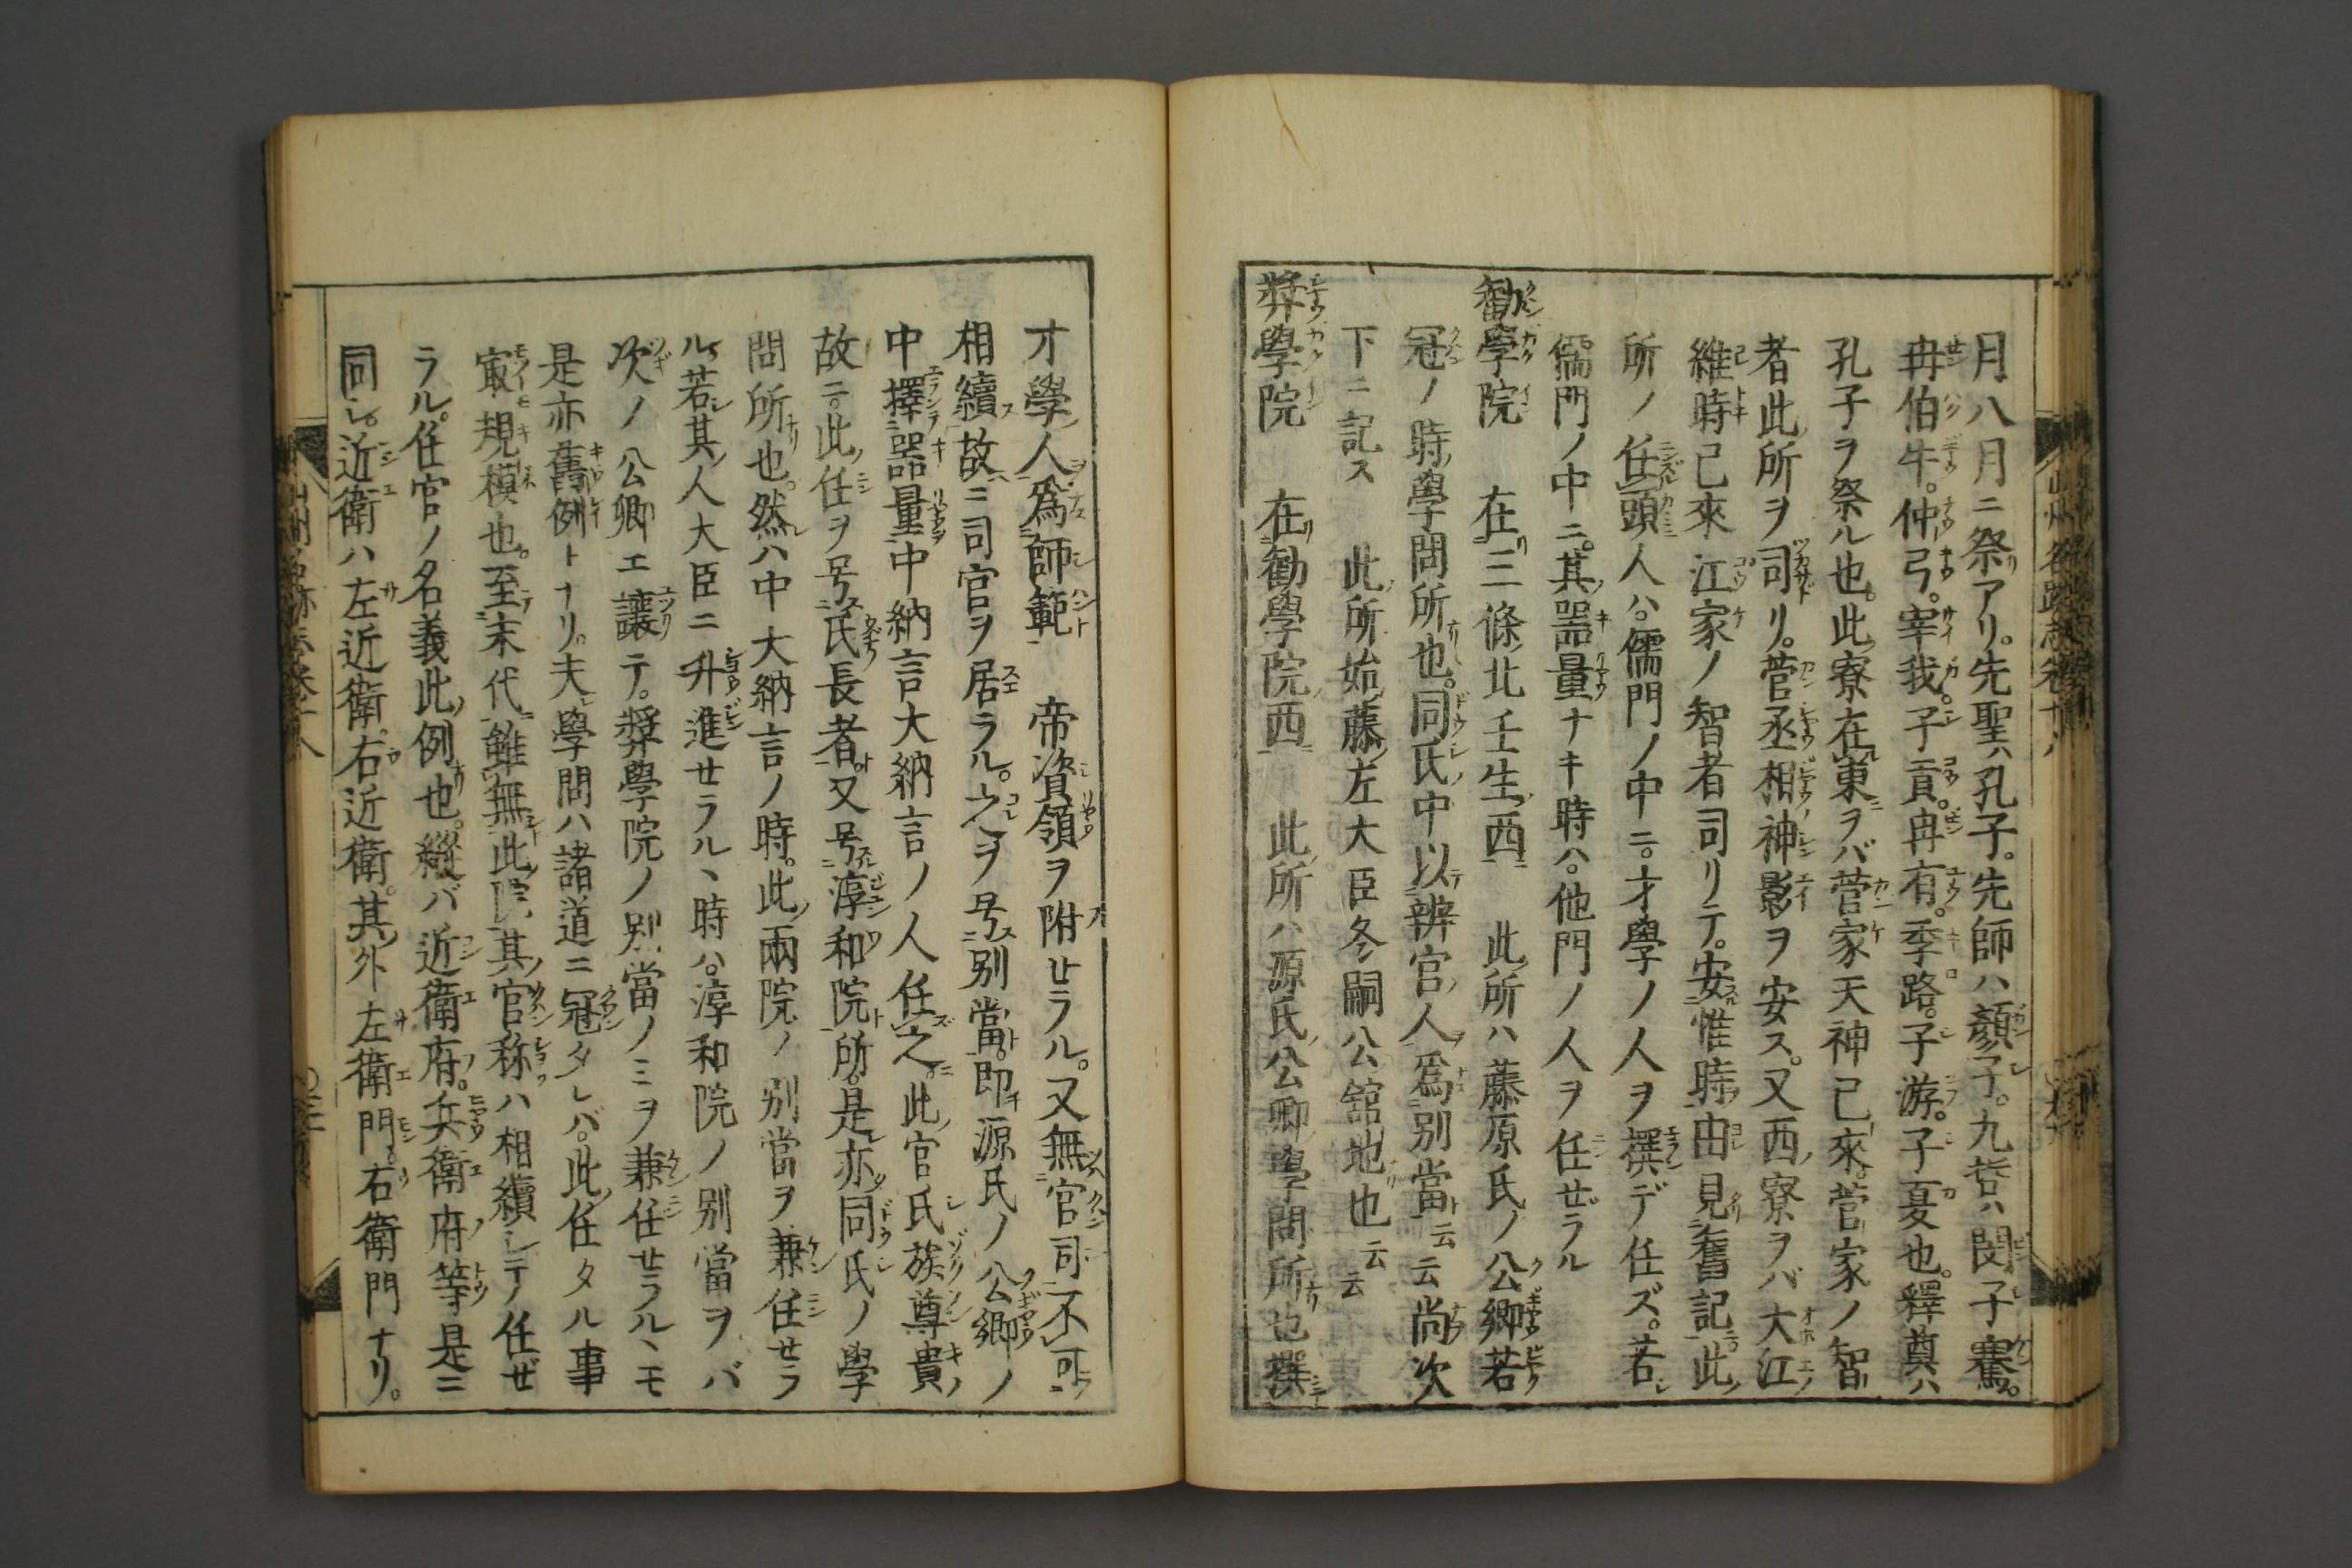 月八月ニ祭アリ。先聖ハ孔子。先師ハ顏子。九哲ハ閔子騫。
冉伯牛。仲弓。宰我。子貢。冉有。季路。子游。子夏也。釋奠ハ
孔子ヲ祭ル也。此寮在東ヲバ菅家天神已來。菅家ノ智
者此所ヲ司リ。菅丞相神影ヲ安ス。又西寮ヲバ大江
維時已來江家ノ智者司リテ。安惟時由見舊記此
所ノ任頭人ハ。儒門ノ中ニ。才學ノ人ヲ撰デ任ズ。若
儒門ノ中ニ。其器量ナキ時ハ。他門ノ人ヲ任ゼラル
勸學院 在三條北壬生西 此所ハ藤原氏ノ公卿若
冠ノ時學問所也。同氏中以辨官人爲別當云云尚次
下ニ記ス 此所始藤左大臣冬嗣公舘地也云云
奬學院 在勸學院西 此所ハ源氏公卿學問所也撰
才學人爲師範 帝資領ヲ附セラル。又無官司不可
相續故ニ司官ヲ居ラル。之ヲ号別當。即源氏ノ公卿ノ
中擇器量中納言大納言ノ人任之。此官氏族尊貴
故ニ。此任ヲ号氏長者又号淳和院所。是亦同氏ノ學
問所也。然ハ中大納言ノ時。此兩院ノ別當ヲ兼任セラ
ル若其人大臣ニ升進セラルヽ時ハ。淳和院ノ別當ヲバ
次ノ公卿エ讓テ。奬學院ノ別當ノミヲ兼任セラルヽモ
是亦舊例トナリ。夫學問ハ諸道ニ冠タレバ。此任タル事
㝡規模也。至末代雖無此院其官称ハ相續シテ任ゼ
ラル。任官ノ名義此例也。縱バ近衛府。兵衛府等是ニ
同シ。近衛ハ左近衛。右近衛。其外左衛門。右衛門ナリ。